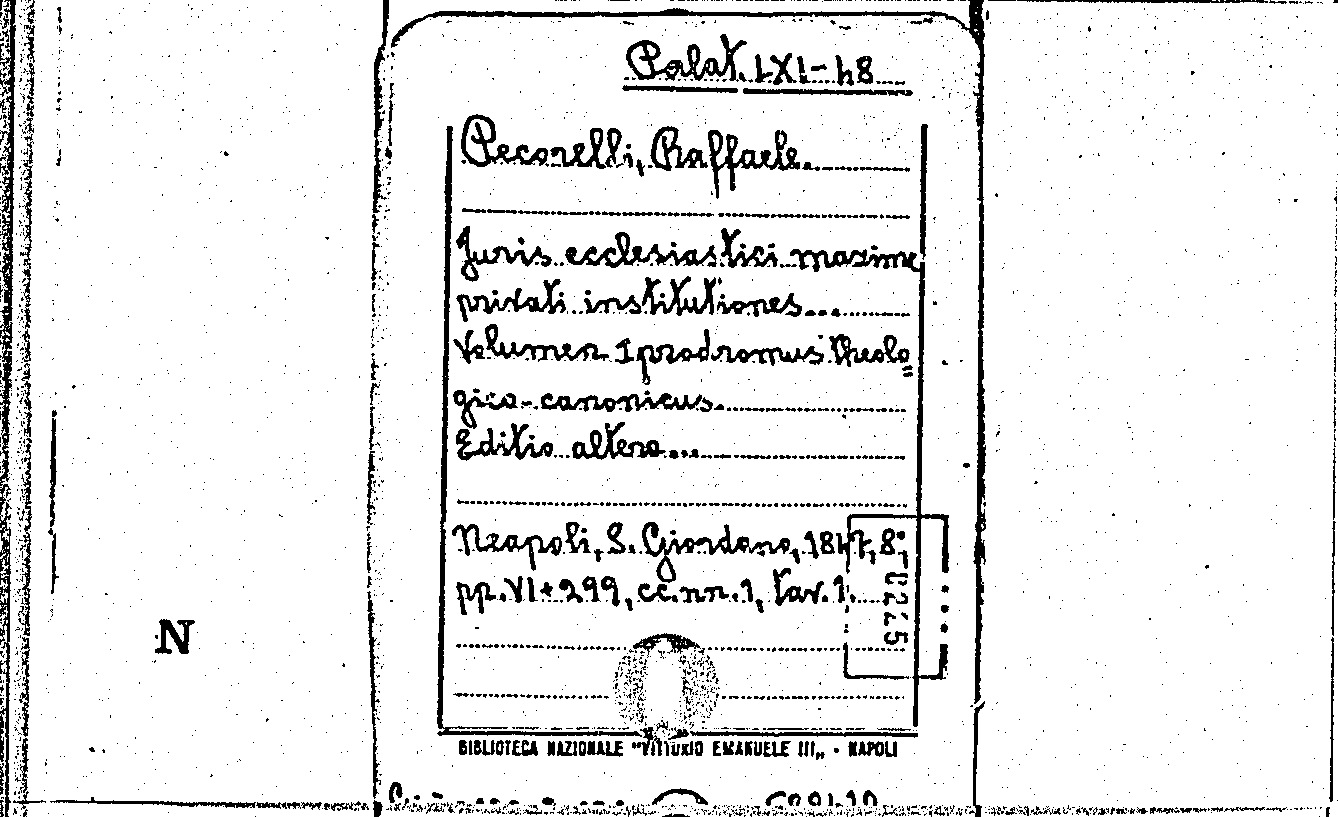 Palat. LXI-48
Pecorelli, Raffaele.
Juris ecclesiastici maxime
privati institutiones...
Volumen I prodromus theolo"
gico-canonicus.
Editio altera...
Neapoli, S. Giordano, 1847, 8°,
pp. VI+299, cc.nn. 1, tav. 1.
N
BIBLIOTECA NAZIONALE "VITTORIO EMANUELE III„ - NAPOLI